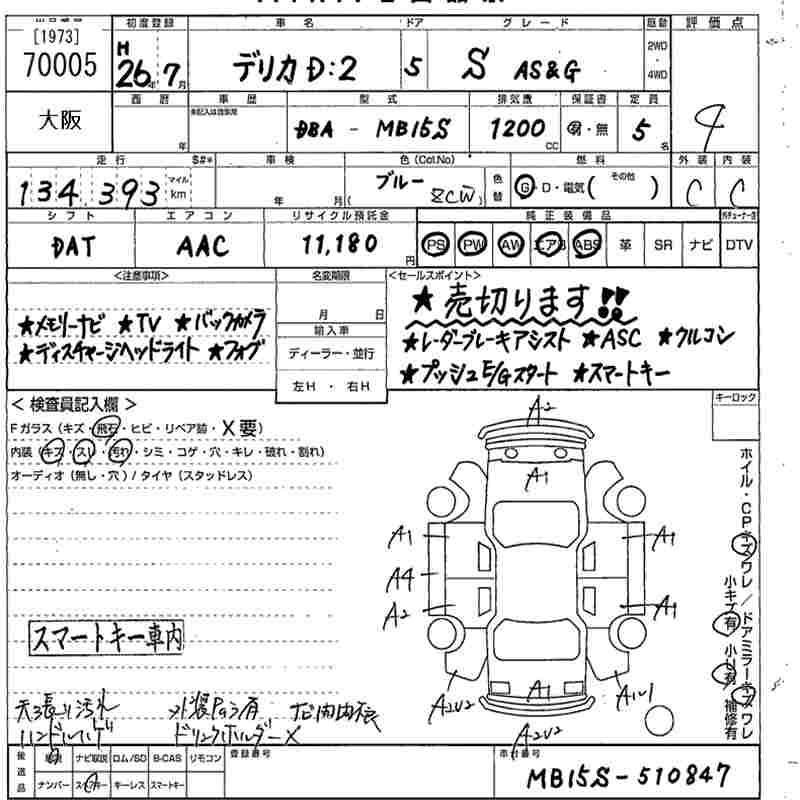 [1973]
70005
大阪
初度登録
H
26年 7月
車名
デリカ D:2
ドア
5
グレード
S AS&G
駆動
2WD
4WD
評価点
4
西暦
年
車歴
型式
DBA - MB15S
排気量
1200
CC
保証書
有・無
定員
5
名
走行 S#*
134,393
マイル
km
車検
年 月
色(Col.No)
ブルー
ZCW
色替
燃料
G・D・電気( その他 )
外装 内装
C C
シフト
DAT
エアコン
AAC
リサイクル預託金
11,180
円
純正装備品
PS PW AW エアB ABS 革 SR ナビ DTV
<注意事項>
★メモリーナビ ★TV ★バックカメラ
★ディスチャージヘッドライト ★フォグ
名変期限
月 日
輸入車
ディーラー・並行
左H・右H
<セールスポイント>
★売切ります!!
★レーダーブレーキアシスト ★ASC ★クルコン
★プッシュE/Gスタート ★スマートキー
<検査員記入欄>
Fガラス(キズ・飛石・ヒビ・リペア跡・X要)
内装(キズ・スレ・汚れ・シミ・コゲ・穴・キレ・破れ・割れ)
オーディオ(無し・穴)/タイヤ(スタッドレス)
キーロック
A2
A1
A1 A1
A4
A2 A1
A2U2 A1 A1U1
A2U2
ホイル・CPキズワレ/ドアミラーキズワレ
小キズ有 小U有 補修有
スマートキー車内
天張り汚れ
ハンドルハゲ
ドリンクホルダーX
後送品
ナビ取説 ロム/SD B-CAS リモコン
ナンバー スペアキー キーレス スマートキー
登録番号
車台番号
MB15S-510847